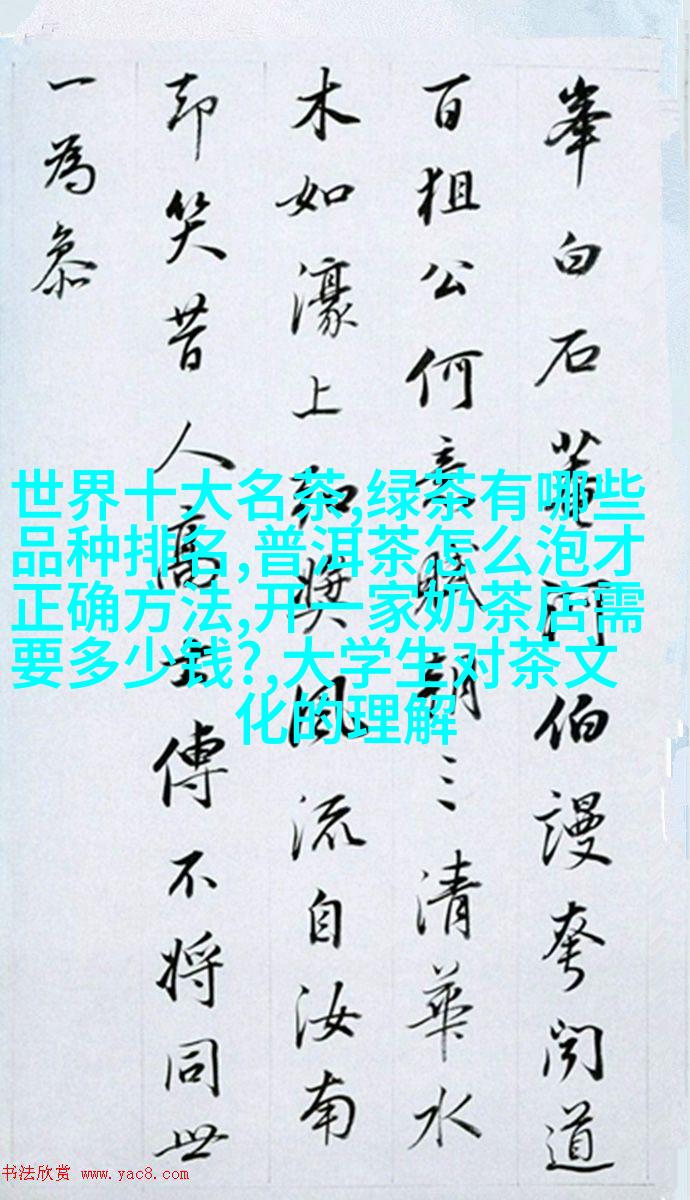 峯白石菴門伯謾夸聞道
百狙公何意賦朝三清華水
木如濠上奬風流自汝南
却笑昔人高士傳不將同世
一為叅
世界十大名茶,绿茶有哪些
品种排名,普洱茶怎么泡才
正确方法,开一家奶茶店需
要多少钱?,大学生对茶文
化的理解
书法欣赏 www.yac8.com